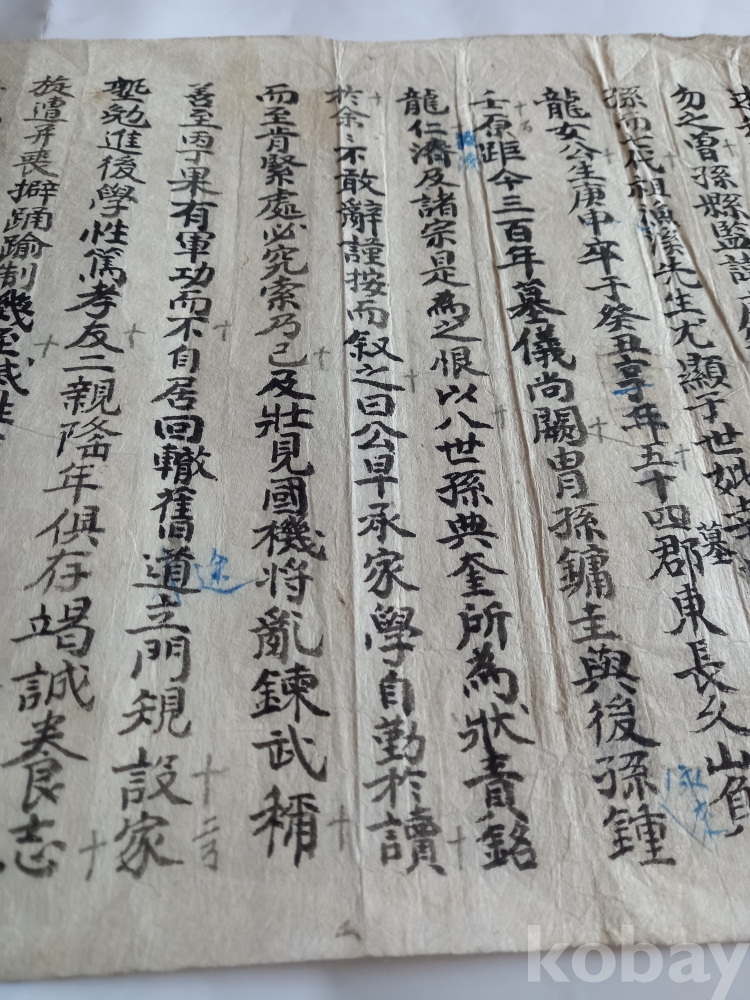 勿之曾孫縣監諱
孫而七代祖漁隱先生尤顯于世妣
墓
龍女公生庚申卒于癸丑享年五十四郡東長久山負
壬原距今三百年墓儀尚闕胄孫鏞圭與後孫鍾
龍仁濟及諸宗是為之恨以八世孫典奎所為狀責銘
於余余不敢辭謹按而叙之曰公早承家學自勤於讀
而至肯綮處必究索乃已及壯見國機將亂鍊武稱
善至丙丁果有軍功而不自居回轍舊道立門規設家
途
塾勉進後學性篤孝友二親隆年俱存竭誠養志
旋遭幷喪擗踊踰制幾至滅性
kobay